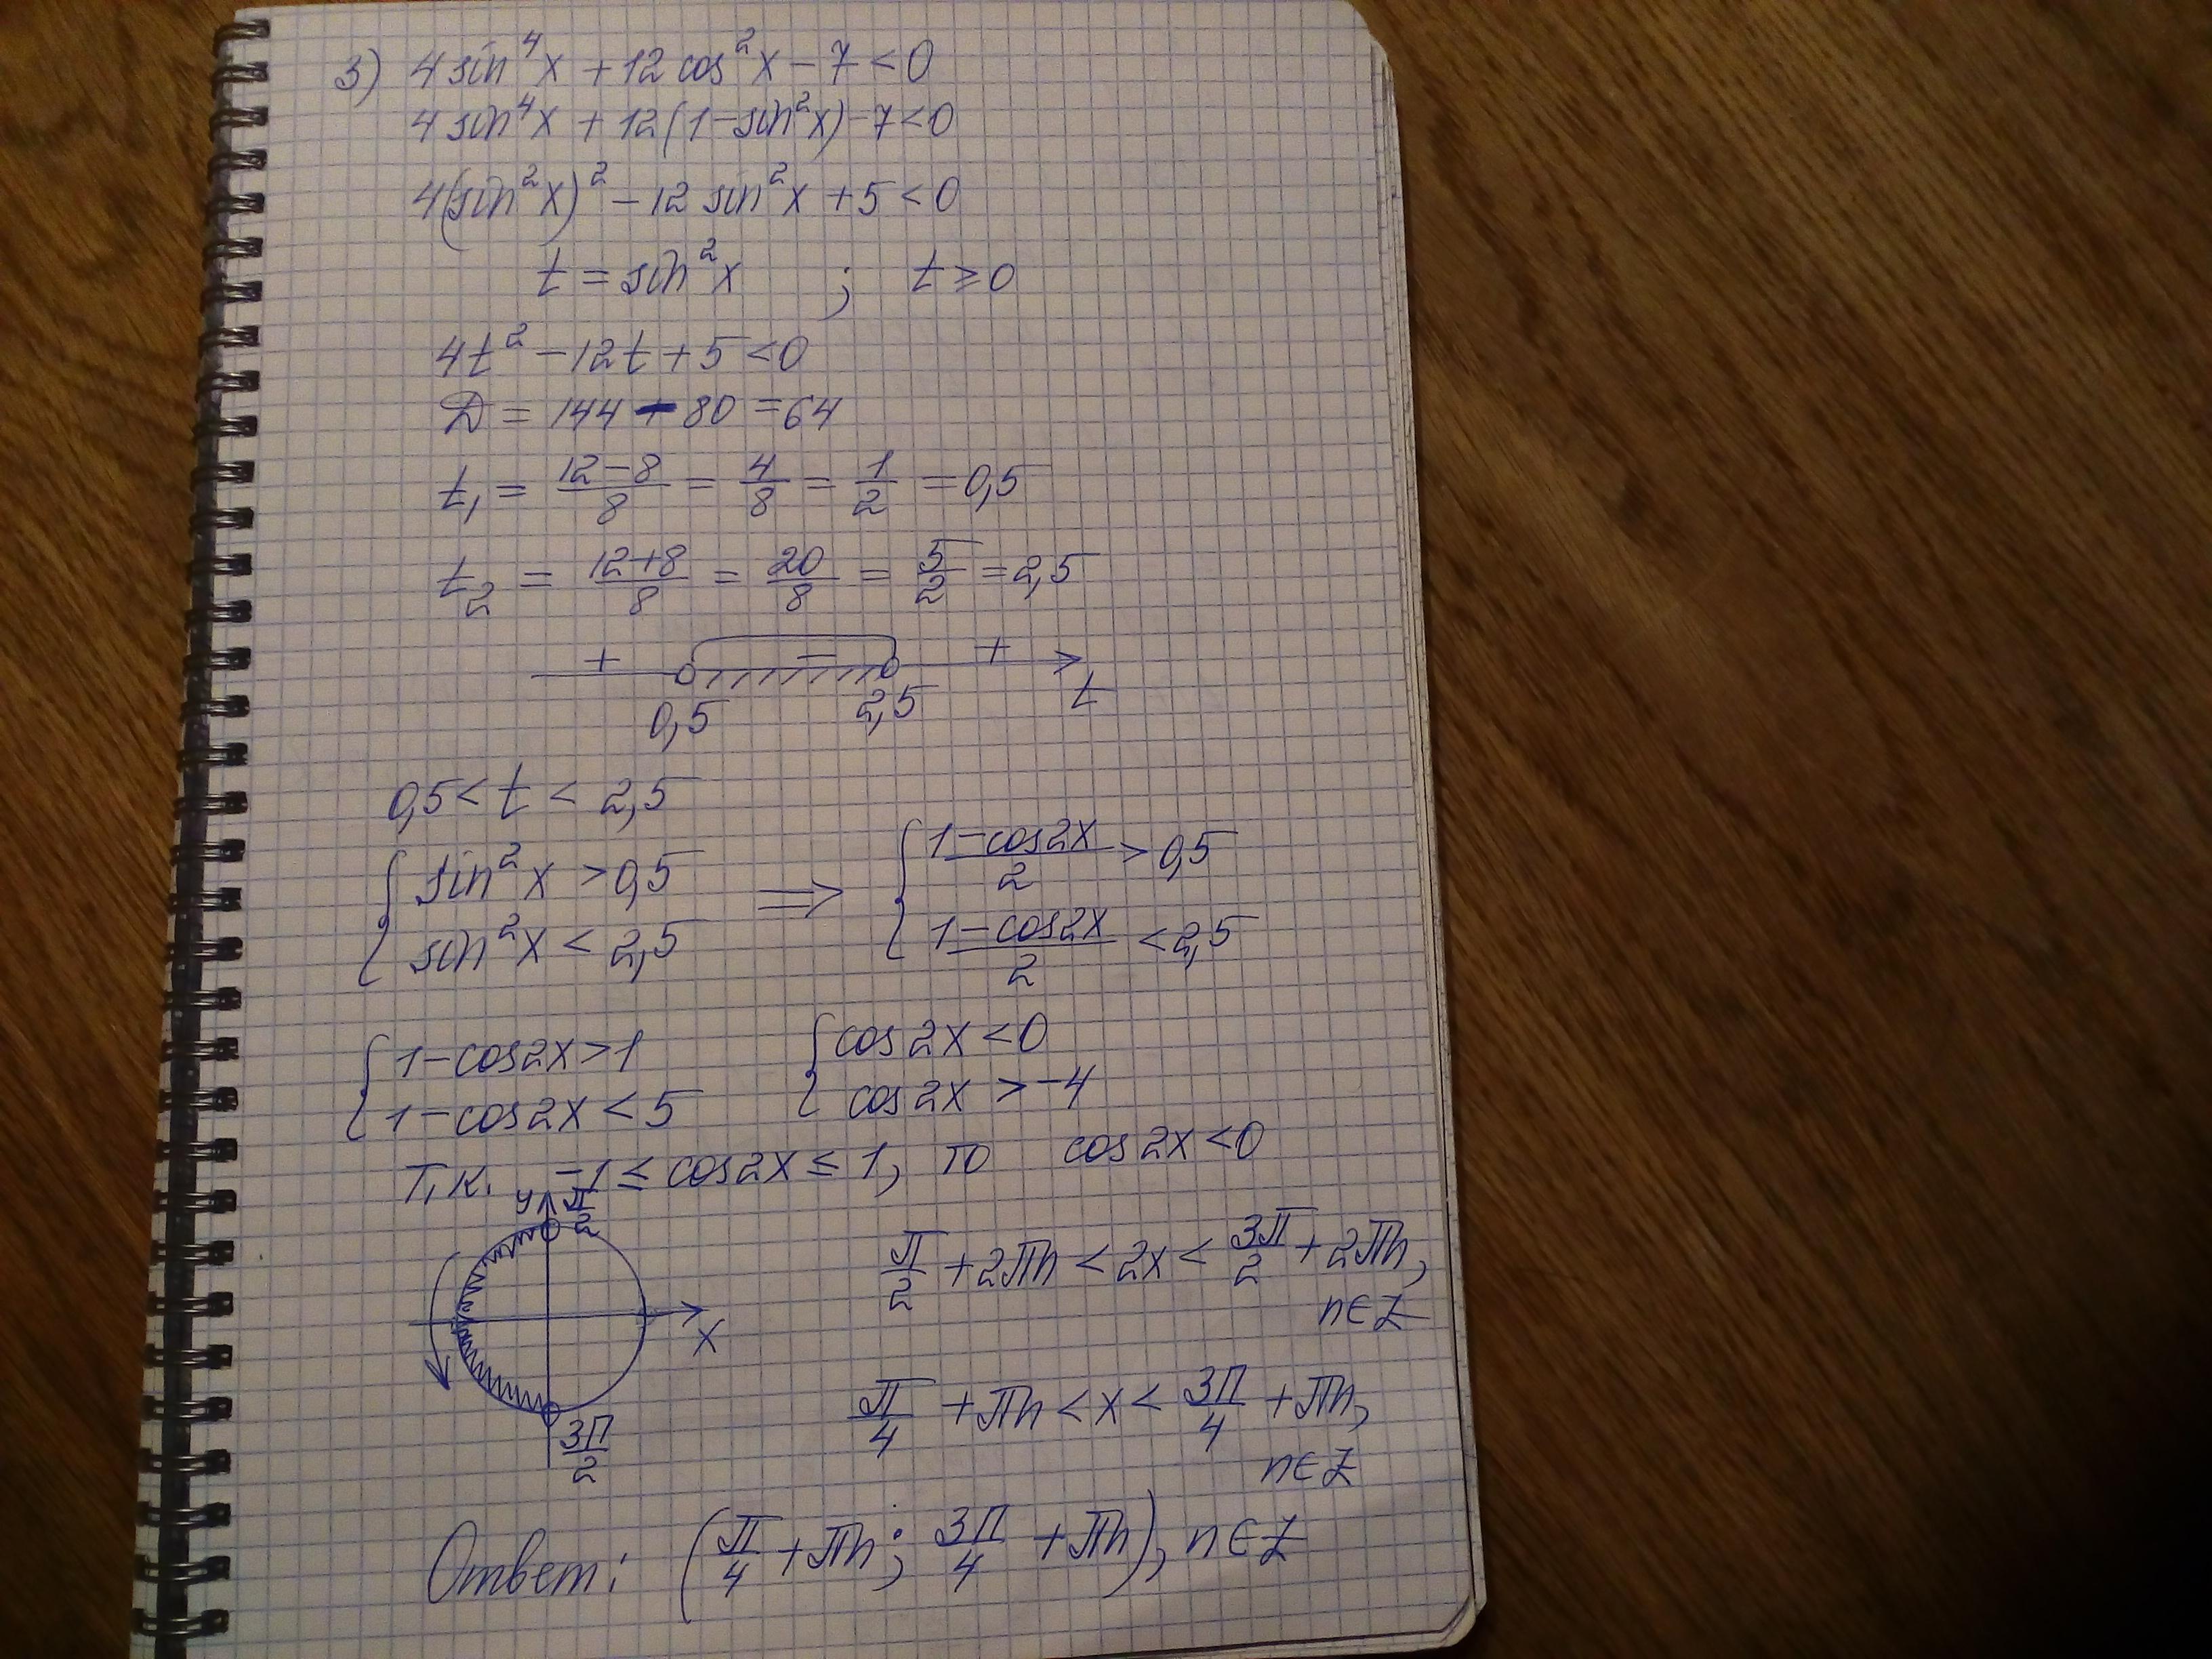 3) 4 sin⁴x + 12 cos²x − 7 < 0
4 sin⁴x + 12(1−sin²x) − 7 < 0
4(sin²x)² − 12 sin²x + 5 < 0
t = sin²x ; t ≥ 0
4t² − 12t + 5 < 0
D = 144 − 80 = 64
t₁ = (12−8)/8 = 4/8 = 1/2 = 0,5
t₂ = (12+8)/8 = 20/8 = 5/2 = 2,5
+ − +
0,5 2,5 t
0,5 < t < 2,5
{ sin²x > 0,5 ⟹ { (1−cos2x)/2 > 0,5
sin²x < 2,5 (1−cos2x)/2 < 2,5
{ 1−cos2x > 1 { cos2x < 0
1−cos2x < 5 cos2x > −4
Т.к. −1 ≤ cos2x ≤ 1, то cos2x < 0
y π/2
x
3π/2
π/2 + 2πn < 2x < 3π/2 + 2πn,
n∈Z
π/4 + πn < x < 3π/4 + πn,
n∈Z
Ответ: (π/4 + πn; 3π/4 + πn), n∈Z